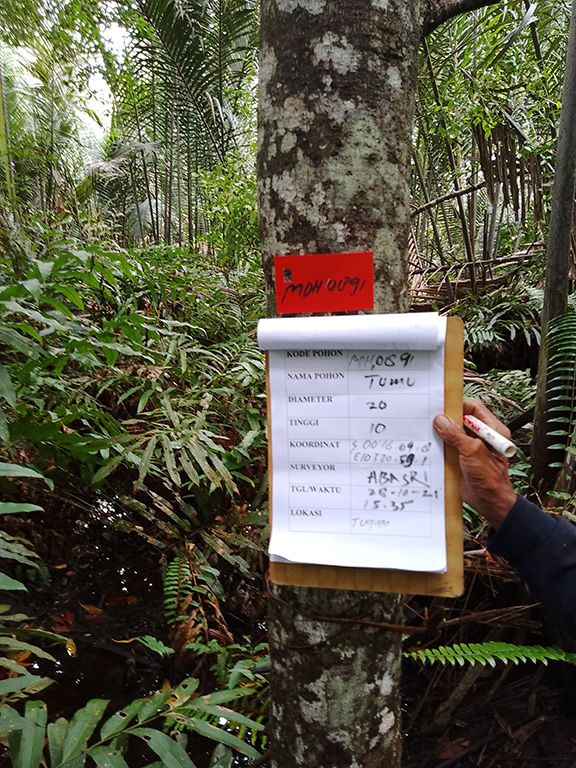 MDH'0091
KODE POHON MDH,0091
NAMA POHON TUMU
DIAMETER 20
TINGGI 10
KOORDINAT S 0016.
E10320.59.1
SURVEYOR ABASRI
TGL/WAKTU 28-10-21
15.35
LOKASI